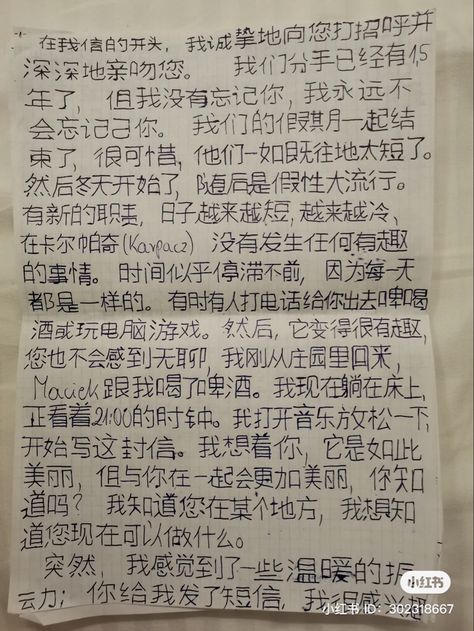 在我信的开头,我诚挚地向您打招呼并
深深地亲吻您。 我们分手已经有1,5
年了,但我没有忘记你,我永远不
会忘记己你。 我们的假期一起结
束了,很可惜,他们一如既往地太短了。
然后冬天开始了,随后是假性大流行。
有新的职责,日子越来越短,越来越冷、
在卡尔帕奇(Karpacz)没有发生任何有趣
的事情。时间似乎停滞不前,因为每一天
都是一样的。有时有人打电话给你出去啤喝
酒或玩电脑游戏。然后,它变得很有趣,
您也不会感到无聊,我刚从庄园里回来,
Maciek跟我喝了啤酒。我现在躺在床上,
正看着21:00的时钟。我打开音乐放松一下,
开始写这封信。我想着你,它是如此
美丽,但与你在一起会更加美丽,你知
道吗? 我知道您在某个地方,我想知
道您现在可以做什么。
突然,我感觉到了一些温暖的振
动力;你给我发了短信,我很感兴
小红书
小红书 ID:302318667